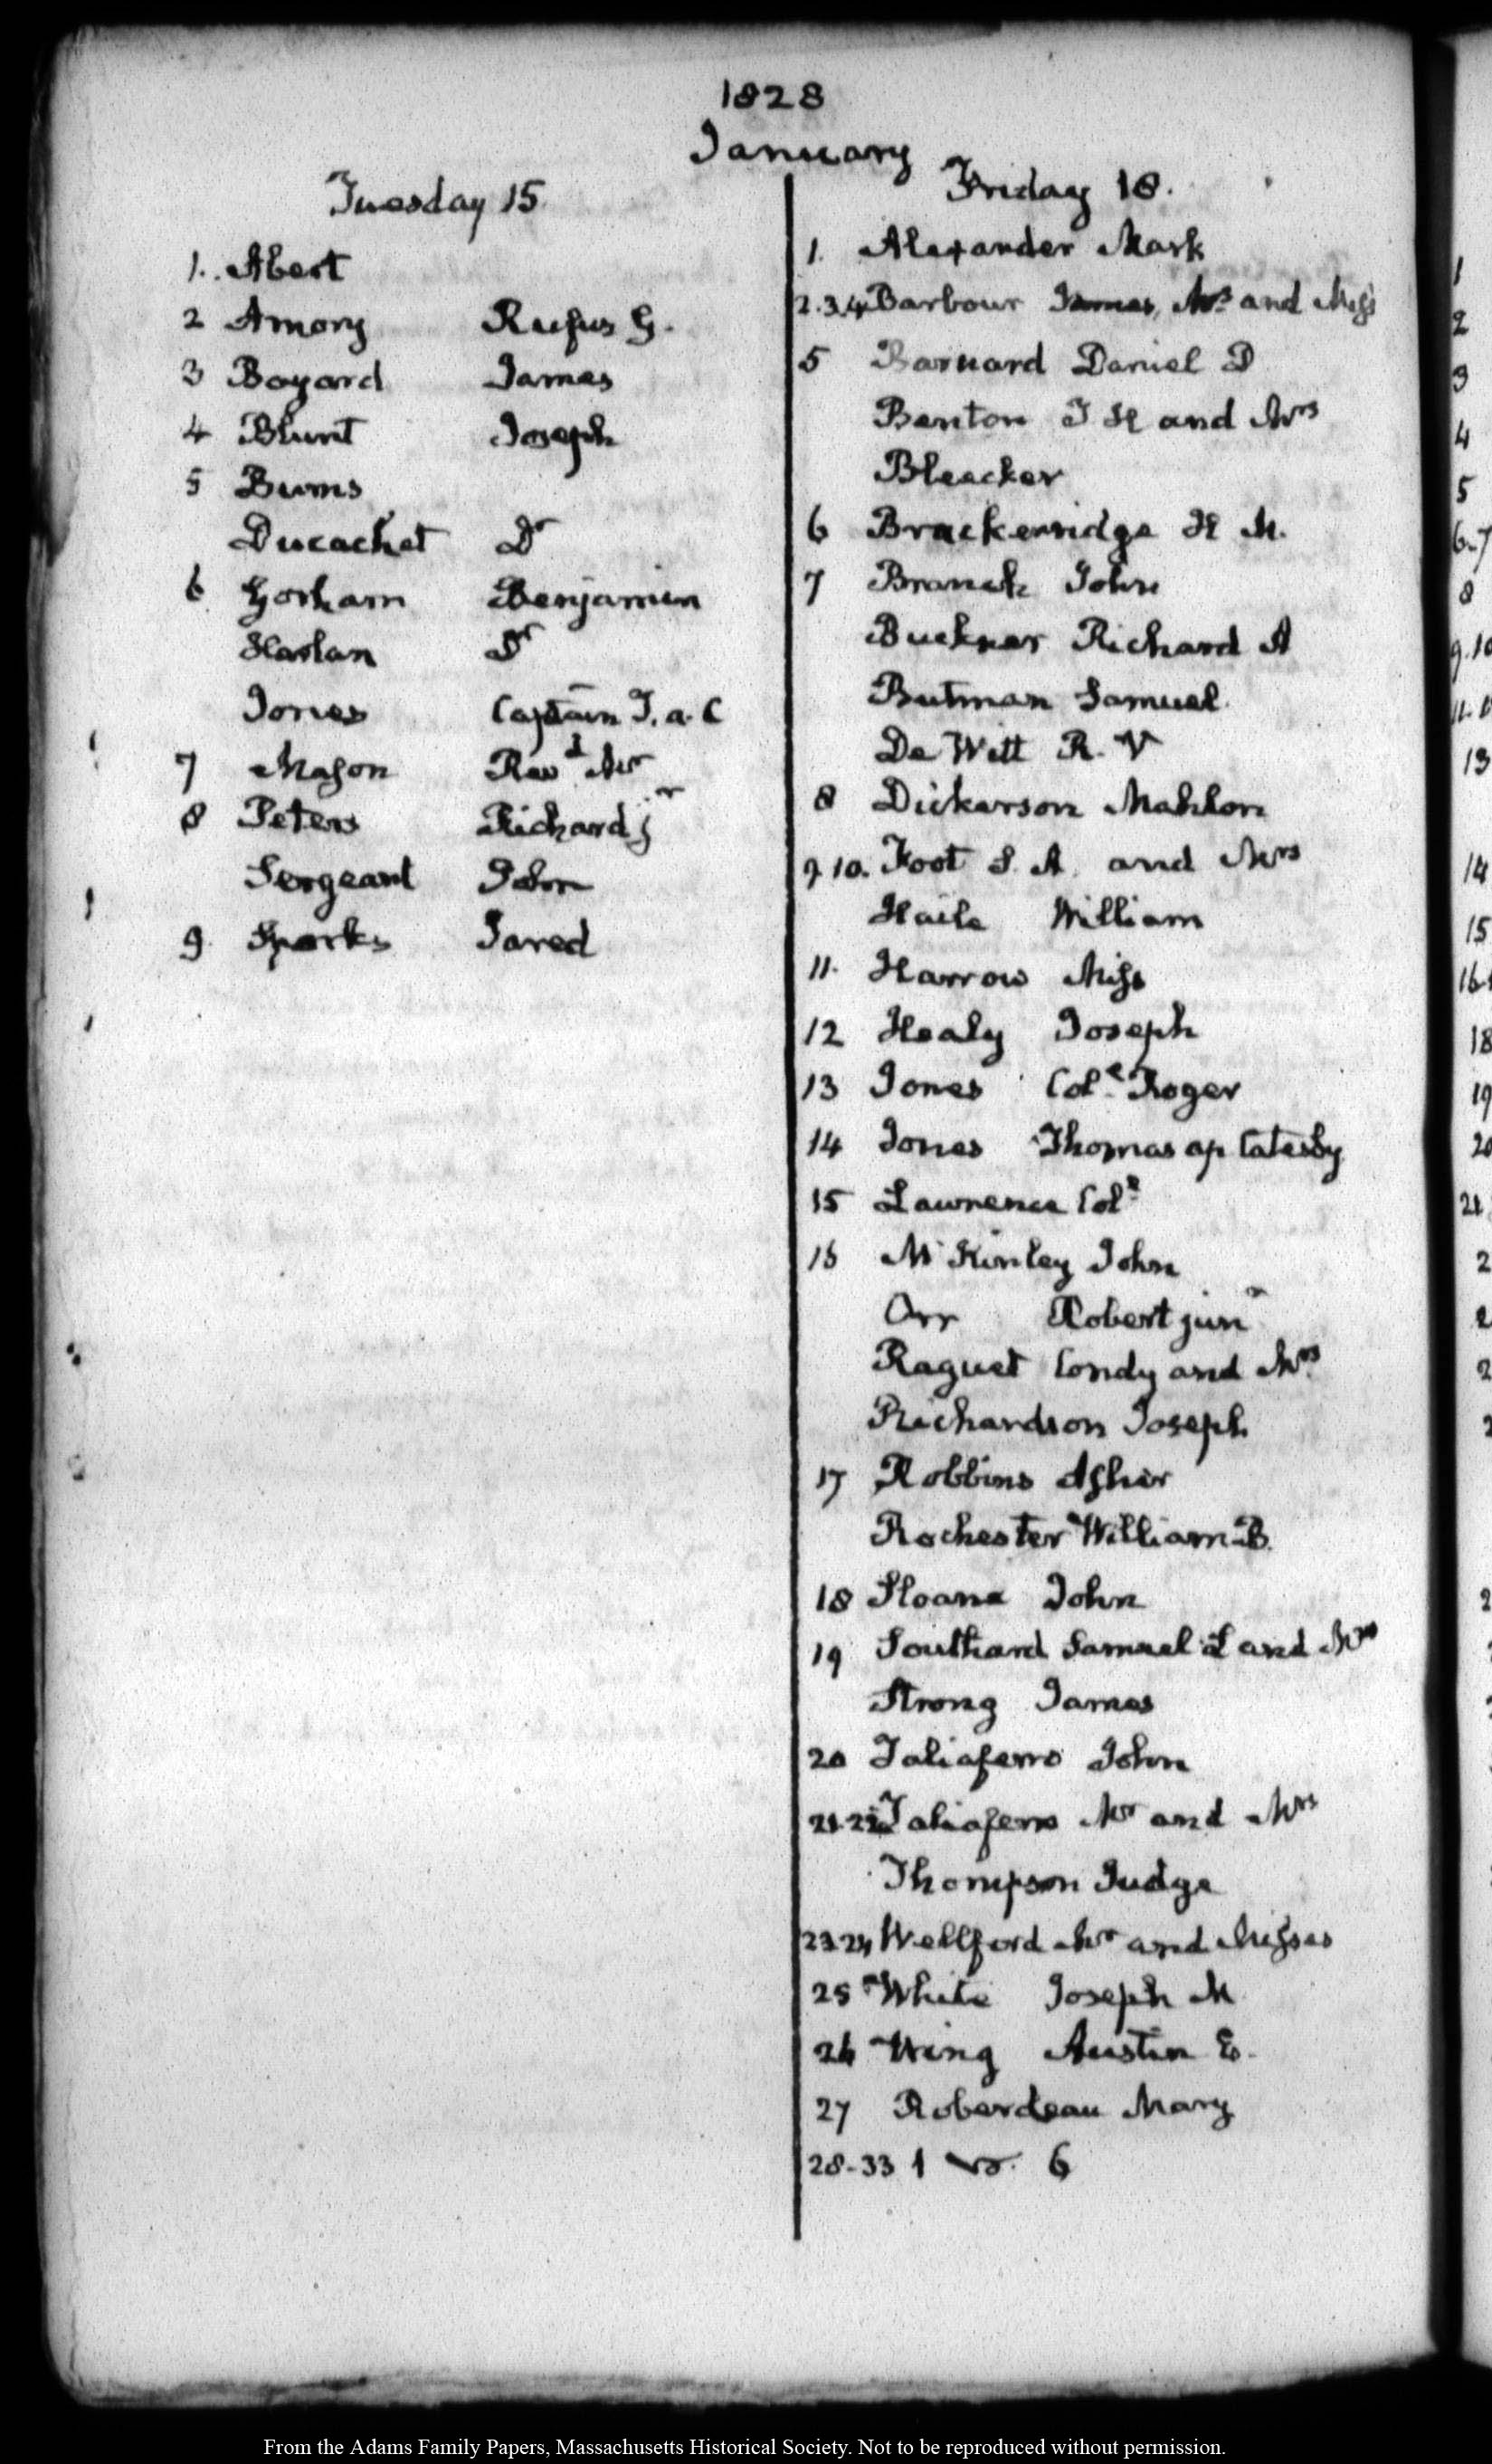 1828
January
Tuesday 15.
1. Abert
2 Amory Rufus G.
3 Bayard James
4 Blunt Joseph
5 Burns
Ducachet Dr
6 Gorham Benjamin
Harlan Dr
Jones Captain T. a. C
7 Mason Revd Mr
8 Peters Richard jr
Sergeant John
9. Sparks Jared
Friday 18.
1. Alexander Mark
2.3.4 Barbour James, Mrs and Miss
5 Barnard Daniel D
Benton T H and Mrs
Bleecker
6 Brackenridge H M.
7 Branch John
Buckner Richard A
Butman Samuel.
De Witt R. V
8 Dickerson Mahlon
9.10. Foot S. A. and Mrs
Haile William
11. Harrow Miss
12 Healy Joseph
13 Jones Col. Roger
14 Jones Thomas ap Catesby
15 Lawrence Col.
16 McKinley John
Orr Robert junr
Raguet Condy and Mrs
Richardson Joseph
17 Robbins Asher
Rochester William B.
18 Sloane John
19 Southard Samuel L and Mrs
Strong James
20 Taliaferro John
21.22 Taliaferro Mr and Mrs
Thompson Judge
23.24 Wellford Mr and Misses
25 White Joseph M
26 Wing Austin E.
27 Roberdeau Mary
28-33 1 6
1
2
3
4
5
6-7
8
9.10
13
14
15
18
19
20
21
From the Adams Family Papers, Massachusetts Historical Society. Not to be reproduced without permission.